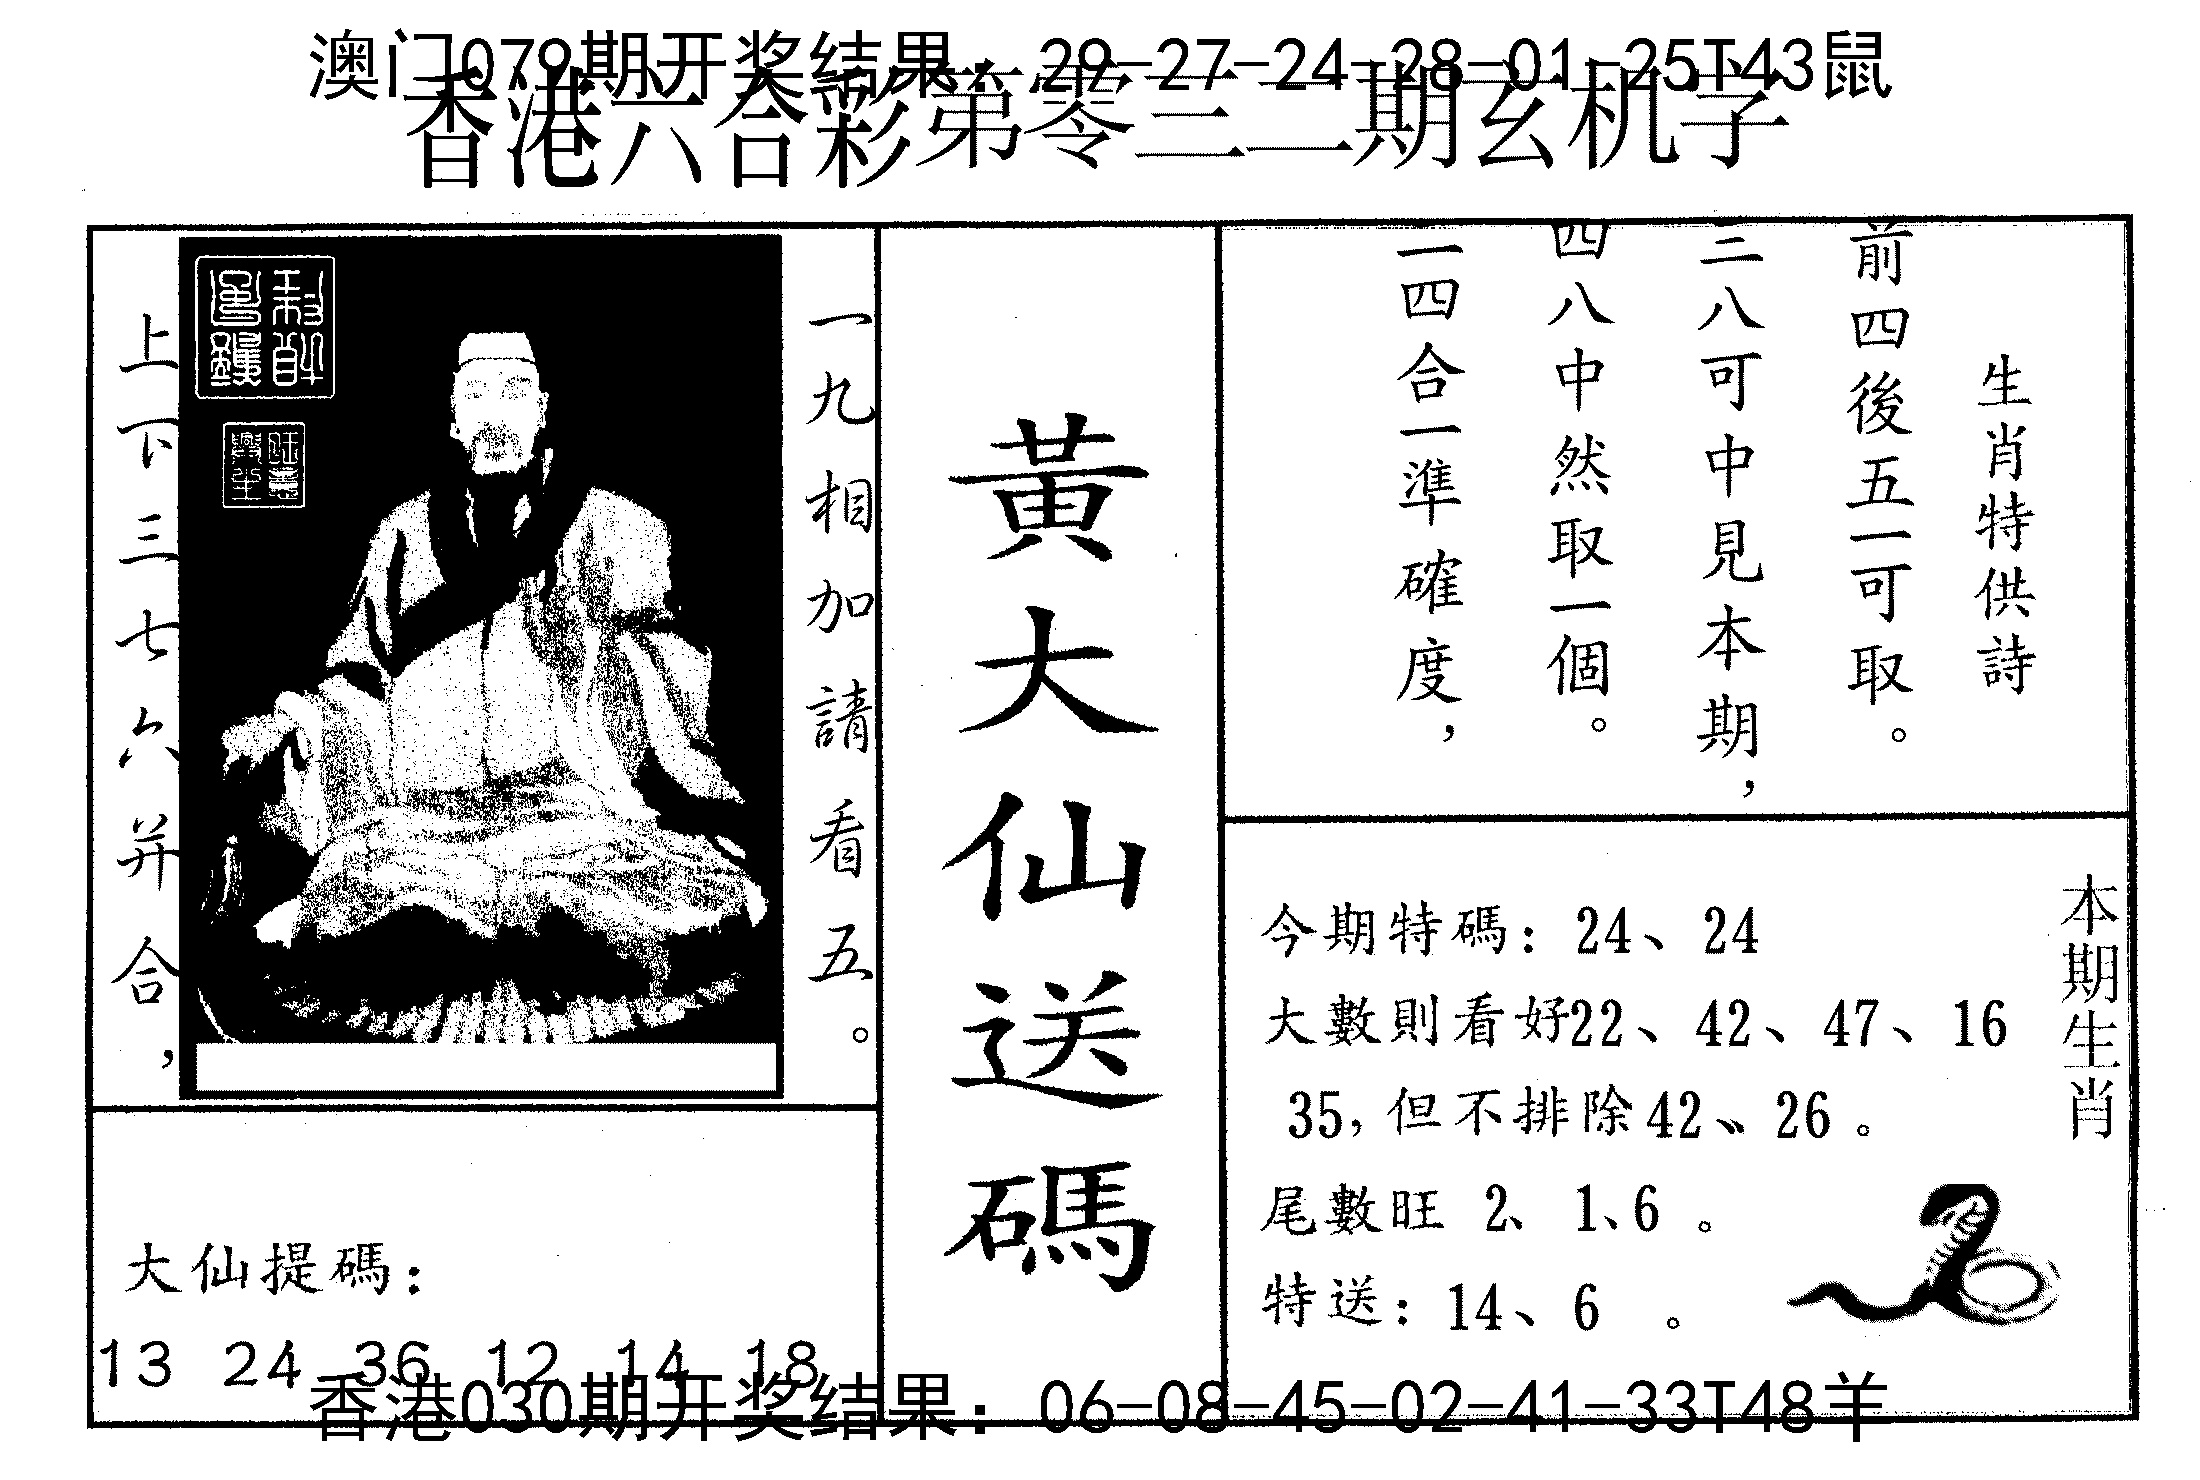 澳门079期开奖结果：29-27-24-28-01-25T43鼠
香港六合彩第零三二期玄机字
生肖特供詩
前四後五一可取。
三八可中見本期，
四八中然取一個。
一四合一準確度，
黃大仙送碼
一九相加請看五。
上下三七六并合，
本期生肖
今期特碼：24、24
大數則看好22、42、47、16
35，但不排除42、26。
尾數旺 2、1、6。
特送：14、6 。
大仙提碼：
13 24 36 12 14 18
香港030期开奖结果：06-08-45-02-41-33T48羊